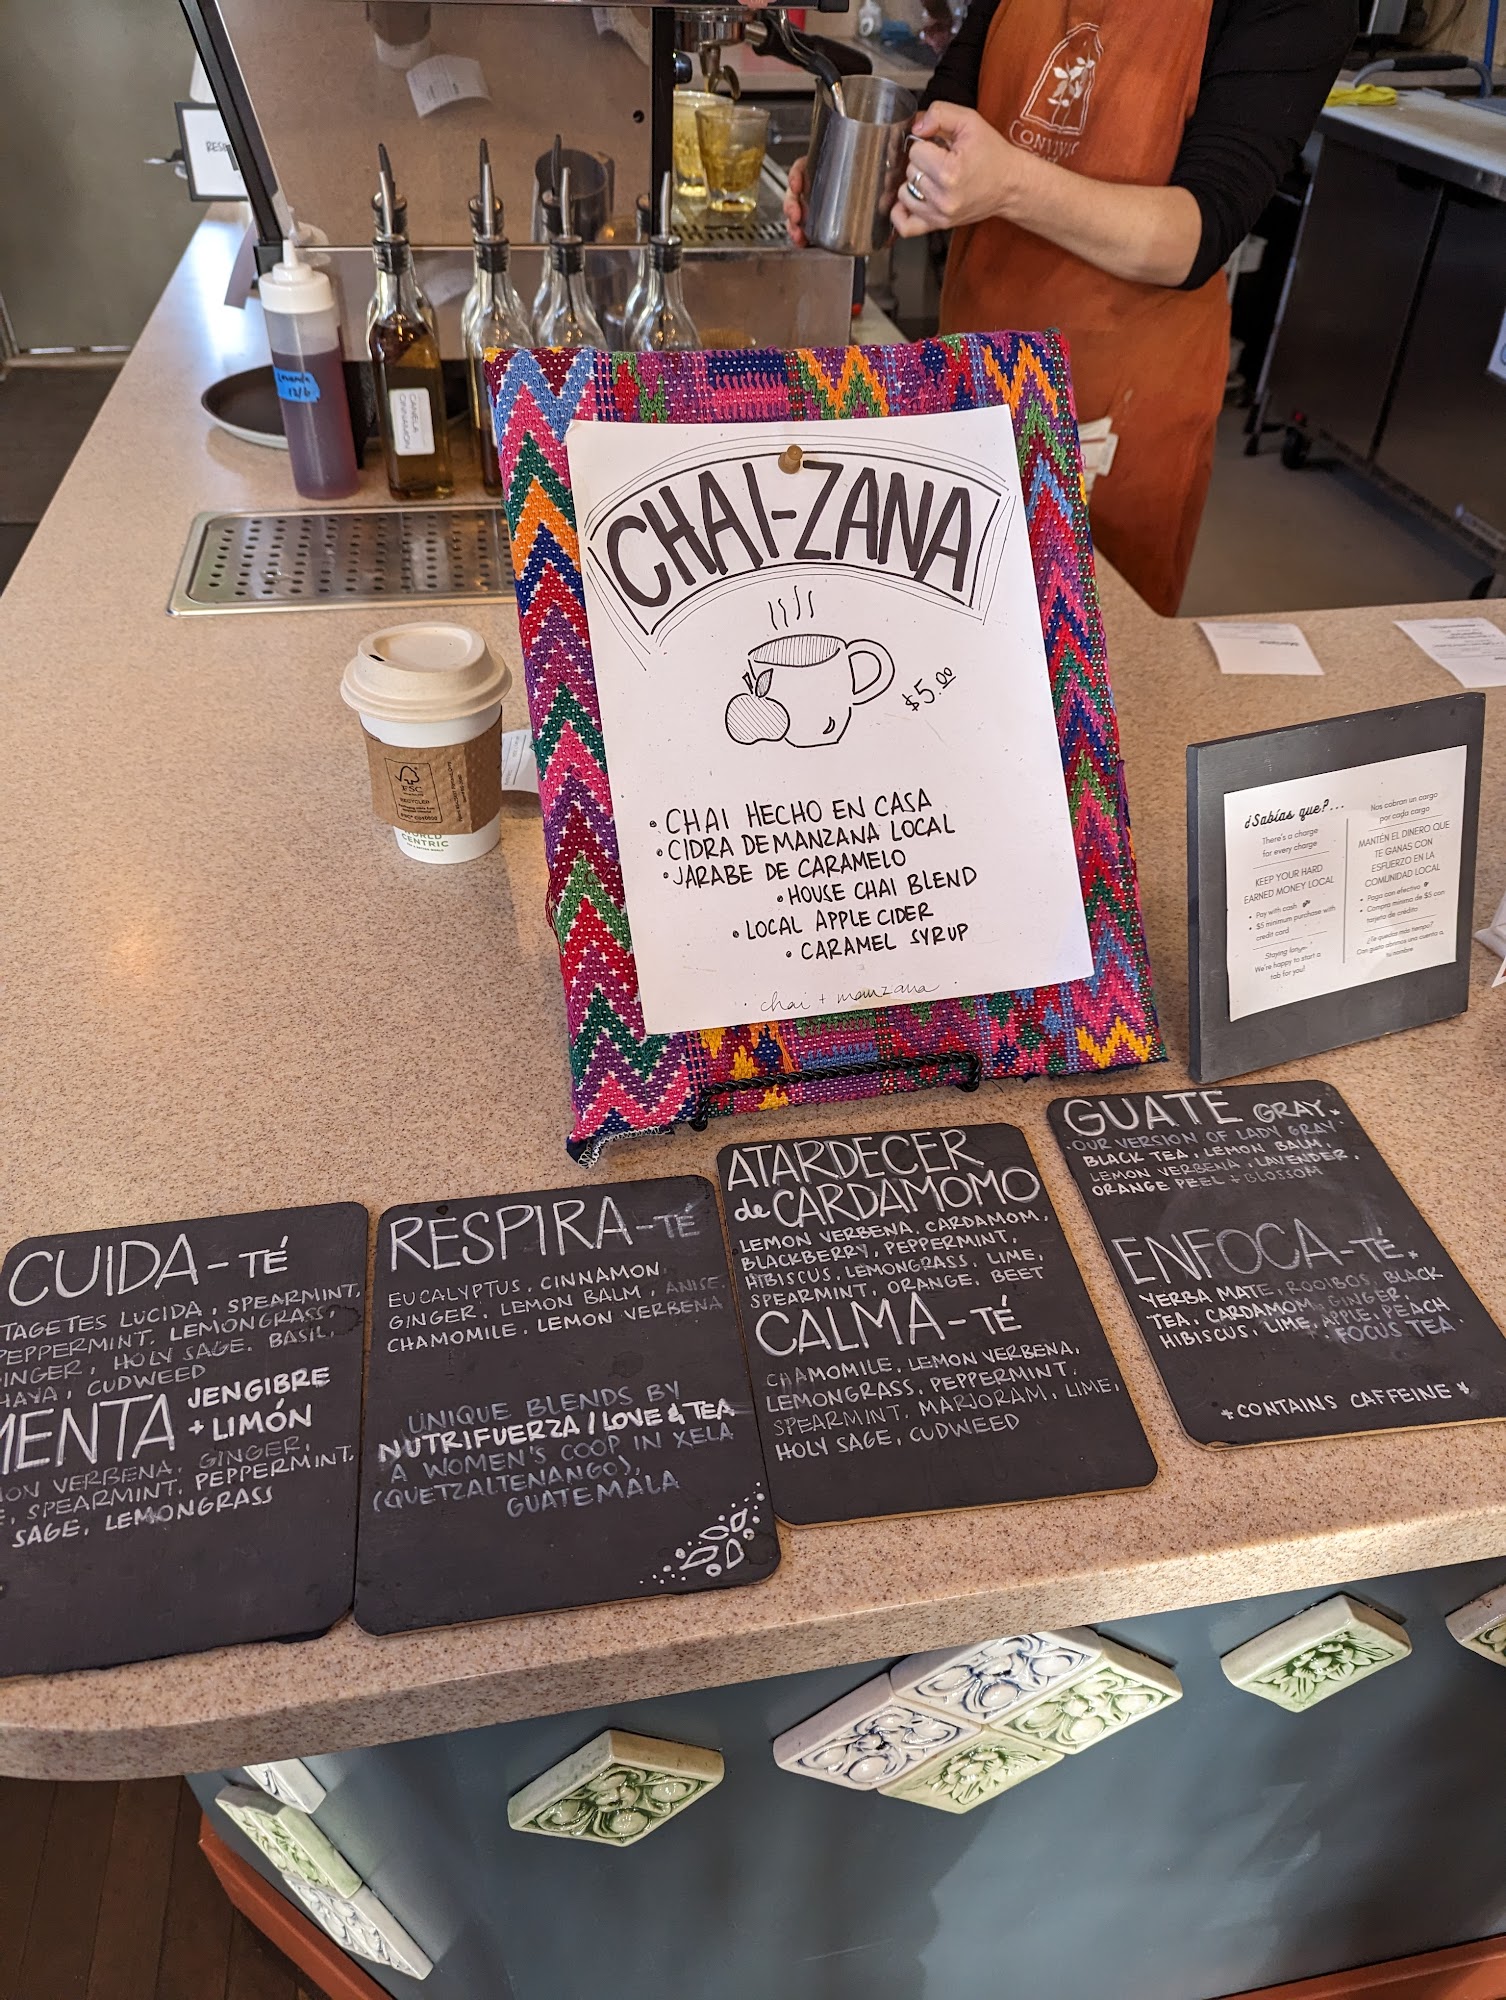 CONVIVIO
Lavanda
12/6
CANELA
CINNAMON
CHAI-ZANA
$5.00
• CHAI HECHO EN CASA
• CIDRA DE MANZANA LOCAL
• JARABE DE CARAMELO
• HOUSE CHAI BLEND
• LOCAL APPLE CIDER
• CARAMEL SYRUP
chai + manzana
FSC
RECYCLED
WORLD
CENTRIC
¿Sabías que?...
There's a charge
for every charge
KEEP YOUR HARD
EARNED MONEY LOCAL
• Pay with cash
• $5 minimum purchase with
credit card
Staying long?
We're happy to start a
tab for you!
Nos cobran un cargo
por cada cargo
MANTÉN EL DINERO QUE
TE GANAS CON
ESFUERZO EN LA
COMUNIDAD LOCAL
• Paga con efectivo
• Compra mínima de $5 con
tarjeta de crédito
¿Te quedas más tiempo?
Con gusto abrimos una cuenta a
tu nombre
CUIDA-TÉ
TAGETES LUCIDA, SPEARMINT,
PEPPERMINT, LEMONGRASS,
GINGER, HOLY SAGE, BASIL,
CUDWEED
MENTA JENGIBRE
+ LIMÓN
VERBENA, GINGER,
SPEARMINT, PEPPERMINT,
SAGE, LEMONGRASS
RESPIRA-TÉ
EUCALYPTUS, CINNAMON,
GINGER, LEMON BALM, ANISE,
CHAMOMILE, LEMON VERBENA
UNIQUE BLENDS BY
NUTRIFUERZA / LOVE & TEA
A WOMEN'S COOP IN XELA
(QUETZALTENANGO),
GUATEMALA
ATARDECER
de CARDAMOMO
LEMON VERBENA, CARDAMOM,
BLACKBERRY, PEPPERMINT,
HIBISCUS, LEMONGRASS, LIME,
SPEARMINT, ORANGE, BEET
CALMA-TÉ
CHAMOMILE, LEMON VERBENA,
LEMONGRASS, PEPPERMINT,
SPEARMINT, MARJORAM, LIME,
HOLY SAGE, CUDWEED
GUATE GRAY*
·OUR VERSION OF LADY GRAY·
BLACK TEA, LEMON BALM,
LEMON VERBENA, LAVENDER,
ORANGE PEEL + BLOSSOM
ENFOCA-TÉ*
YERBA MATE, ROOIBOS, BLACK
TEA, CARDAMOM, GINGER,
HIBISCUS, LIME, APPLE, PEACH
·FOCUS TEA·
*CONTAINS CAFFEINE*